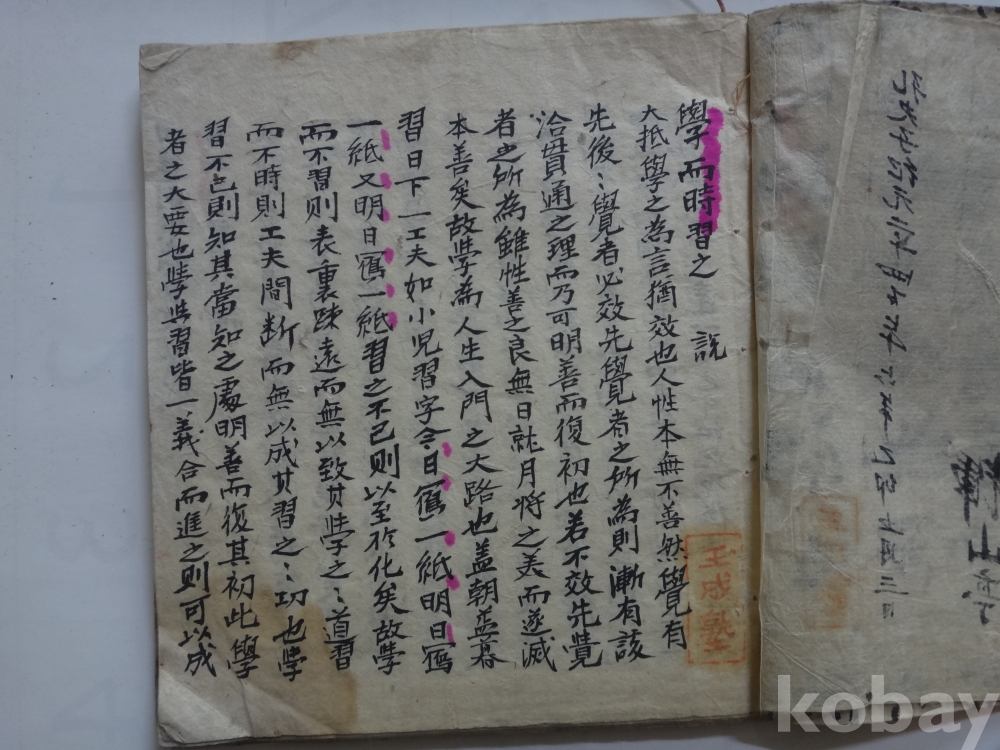 學而時習之 說
大抵學之為言猶效也人性本無不善然覺有
先後〻覺者必效先覺者之所為則漸有該
洽貫通之理而乃可明善而復初也若不效先覺
者之所為雖性善之良無日就月將之美而遂滅
本善矣故学為人生入門之大路也盖朝益暮
習日下一工夫如小児習字今日寫一紙明日寫
一紙又明日寫一紙習之不已則以至於化矣故學
而不習則表裏踈遠而無以致其学之〻道習
而不時則工夫間断而無以成其習之〻功也学
習不已則知其當知之處明善而復其初此學
者之大要也学与習皆一義合而進之則可以成
壬戌塾
山
kobay